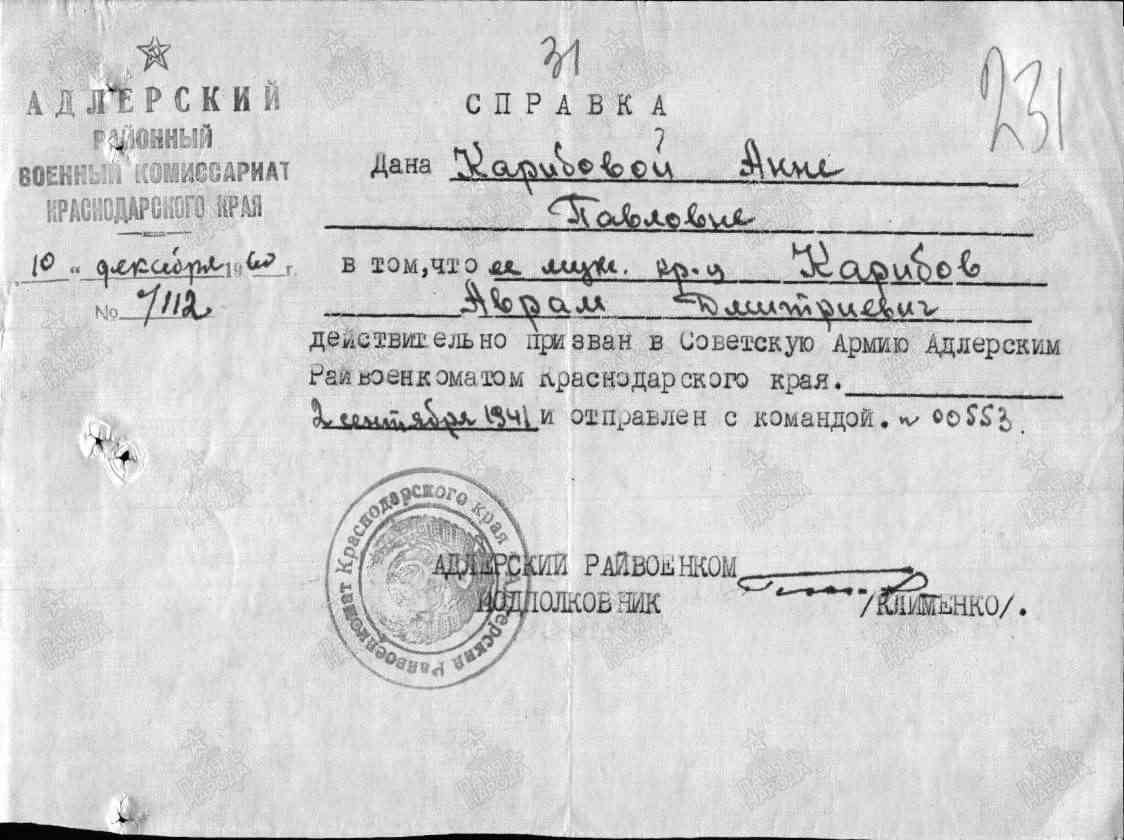 31
231
АДЛЕРСКИЙ
РАЙОННЫЙ
ВОЕННЫЙ КОМИССАРИАТ
КРАСНОДАРСКОГО КРАЯ
10 " декабря 1960 г.
№ 7112
СПРАВКА
Дана Карибовой Анне
Павловне
в том,что ее муж. кр-ц Карибов
Аврам Дмитриевич
действительно призван в Советскую Армию Адлерским
Райвоенкоматом Краснодарского края.
2 сентября 1941 и отправлен с командой. № 00553.
Адлерский Райвоенкомат Краснодарского края
АДЛЕРСКИЙ РАЙВОЕНКОМ
ПОДПОЛКОВНИК /КЛИМЕНКО/.